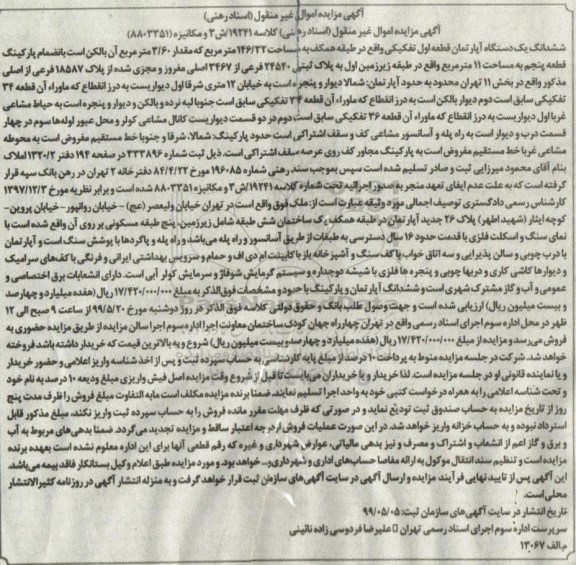 آگهی مزایده اموال غیر منقول (اسناد رهنی)
آگهی مزایده اموال غیر منقول (اسناد رهنی) کلاسه ۱۹۲۴۱/ش۳ و مکانیزه (۸۸۰۳۳۵۱)
ششدانگ یک دستگاه آپارتمان قطعه اول تفکیکی واقع در طبقه همکف به مساحت ۱۴۶/۲۲ متر مربع که مقدار ۳/۶۰ متر مربع آن بالکن است بانضمام پارکینگ
قطعه پنجم به مساحت ۱۱ مترمربع واقع در طبقه زیرزمین اول به پلاک ثبتی ۲۴۵۴۰ فرعی از ۳۴۶۷ اصلی مفروز و مجزی شده از پلاک ۱۸۵۸۷ فرعی از اصلی
مذکور واقع در بخش ۱۱ تهران محدود به حدود آپارتمان: شمالا دیوار و پنجره است به خیابان ۱۲ متری شرقا اول دیواریست به درز انقطاع که ماوراء آن قطعه ۳۴
تفکیکی سابق است دوم دیوار بالکن است به درز انقطاع که ماوراء آن قطعه ۳۴ تفکیکی سابق است جنوبا لبه نرده و بالکن و دیوار و پنجره است به حیاط مشاعی
غربا اول دیواریست به درز انقطاع که ماوراء آن قطعه ۳۶ تفکیکی سابق است دوم در دو قسمت دیواریست کانال مشاعی کولر و محل عبور لوله‌ها سوم در چهار
قسمت درب و دیوار است به راه پله و آسانسور مشاعی کف و سقف اشتراکی است حدود پارکینگ: شمالا، شرقا و جنوبا خط مستقیم مفروض است به محوطه
مشاعی غربا خط مستقیم مفروض است به پارکینگ مجاور کف روی عرصه سقف اشتراکی است. ذیل ثبت شماره ۳۳۳۸۹۶ در صفحه ۱۹۴ دفتر ۱۳۲۰/۲ املاک
بنام آقای محمود میرزایی ثبت و صادر تسلیم شده است سپس بموجب سند رهنی شماره ۱۹۶۰۸۵ مورخ ۸۴/۴/۲۲ دفترخانه ۳ تهران در رهن بانک سپه قرار
گرفته است که به علت عدم ایفای تعهد منجر به صدور اجرائیه تحت شماره کلاسه ۱۹۲۴۱/ش۳ و مکانیزه ۸۸۰۳۳۵۱ شده است و برابر نظریه مورخ ۱۳۹۷/۱۲/۳
کارشناس رسمی دادگستری توصیف اجمالی مورد وثیقه عبارت است از: ملک فوق واقع است در تهران خیابان ولیعصر (عج) – خیابان روانپور – خیابان پروین –
کوچه ایثار (شهید اطهر) پلاک ۲۶ جدید آپارتمان در طبقه همکف یک ساختمان شش طبقه شامل زیرزمین، پنج طبقه مسکونی بر روی آن واقع شده است با
نمای سنگ و اسکلت فلزی با قدمت حدود ۱۶ سال دسترسی به طبقات از طریق آسانسور و راه پله می‌باشد و راه پله و پاگردها با پوشش سنگ است و آپارتمان
با درب چوبی و سالن پذیرایی و سه اتاق خواب با کف سنگ و آشپزخانه باز با کابینت ام دی اف و حمام و سرویس بهداشتی ایرانی و فرنگی با کف‌های سرامیک
و دیوارها کاشی کاری و دربها چوبی و پنجره ها فلزی با شیشه دوجداره و سیستم گرمایش شوفاژ و سرمایش کولر آبی است. دارای انشعابات برق اختصاصی و
عمومی و آب و گاز مشترک شهری است و ششدانگ آپارتمان و پارکینگ با حدود و مشخصات فوق‌الذکر به مبلغ ۱۷/۴۲۰/۰۰۰/۰۰۰ ریال (هفده میلیارد و چهارصد
و بیست میلیون ریال) ارزیابی شده است و جهت وصول طلب بانک و حقوق دولتی کلاسه فوق الذکر در روز دوشنبه مورخ ۹۹/۵/۲۰ از ساعت ۹ صبح الی ۱۲
ظهر در محل اداره سوم اجرای اسناد رسمی واقع در تهران چهارراه جهان کودک ساختمان معاونت اجرا اداره سوم اجرا سالن مزایده از طریق مزایده حضوری به
فروش می‌رسد و مزایده از مبلغ ۱۷/۴۲۰/۰۰۰/۰۰۰ ریال (هفده میلیارد و چهارصد و بیست میلیون ریال) شروع و به بالاترین قیمت که خریدار داشته باشد فروخته
خواهد شد. شرکت در جلسه مزایده منوط به پرداخت ۱۰ درصد از مبلغ پایه کارشناسی به حساب سپرده ثبت و پس از اخذ شناسه واریز اعلامی و حضور خریدار
و یا نماینده قانونی او در جلسه مزایده است. لذا خریدار و یا خریداران می‌بایست تا قبل از شروع وقت مزایده اصل فیش واریزی مبلغ ودیعه ۱۰ درصد به نام خود
و تحت شناسه اعلامی را به همراه درخواست کتبی خود به واحد اجرا تسلیم نمایند. ضمنا برنده مزایده مکلف است مابه التفاوت مبلغ فروش را ظرف مدت پنج
روز از تاریخ مزایده به حساب صندوق ثبت تودیع نماید و در صورتی که ظرف مهلت مقرر مانده فروش را به حساب سپرده ثبت واریز نکند، مبلغ مذکور قابل
استرداد نبوده و به حساب خزانه واریز خواهد شد. در این صورت عملیات فروش از درجه اعتبار ساقط و مزایده تجدید می‌گردد. ضمنا بدهی‌های مربوط به آب
و برق و گاز اعم از انشعاب و اشتراک و مصرف و نیز بدهی مالیاتی، عوارض شهرداری و غیره که رقم قطعی آنها برای این اداره معلوم نشده است بعهده برنده
مزایده است و تنظیم سند انتقال موکول به ارائه مفاصا حساب‌های اداری و شهرداری و... خواهد بود. و مورد مزایده طبق اعلام وکیل بستانکار فاقد بیمه می‌باشد.
این آگهی پس از تایید نهایی فرآیند مزایده و ارسال آگهی در سایت آگهی‌های سازمان ثبت قرار خواهد گرفت و به منزله انتشار آگهی در روزنامه کثیرالانتشار
محلی است.
تاریخ انتشار در سایت آگهی‌های سازمان ثبت: ۹۹/۰۵/۰۵
سرپرست اداره سوم اجرای اسناد رسمی تهران علیرضا فردوسی زاده نائینی
م.الف ۱۳۰۶۷